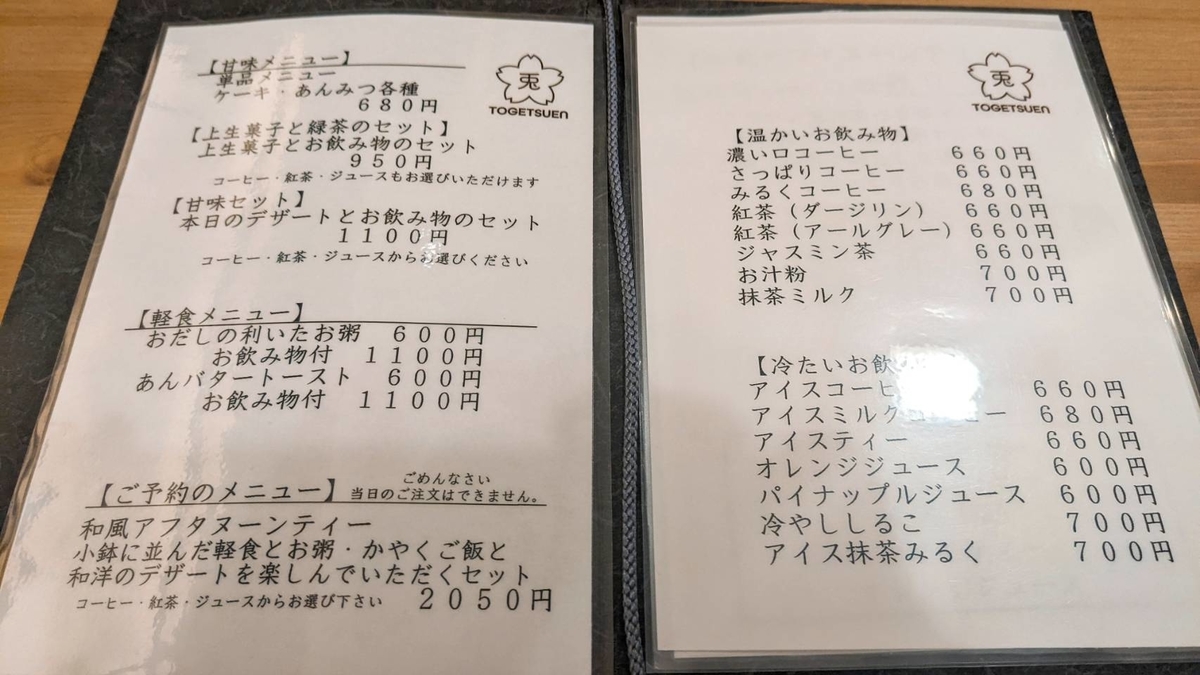 【甘味メニュー】
単品メニュー
ケーキ・あんみつ各種
680円
【上生菓子と緑茶のセット】
上生菓子とお飲み物のセット
950円
コーヒー・紅茶・ジュースもお選びいただけます
【甘味セット】
本日のデザートとお飲み物のセット
1100円
コーヒー・紅茶・ジュースからお選びください
【軽食メニュー】
おだしの利いたお粥 600円
お飲み物付 1100円
あんバタートースト 600円
お飲み物付 1100円
ごめんなさい
【ご予約のメニュー】当日のご注文はできません。
和風アフタヌーンティー
小鉢に並んだ軽食とお粥・かやくご飯と
和洋のデザートを楽しんでいただくセット
コーヒー・紅茶・ジュースからお選び下さい 2050円
兎
TOGETSUEN
兎
TOGETSUEN
【温かいお飲み物】
濃い口コーヒー 660円
さっぱりコーヒー 660円
みるくコーヒー 680円
紅茶(ダージリン) 660円
紅茶(アールグレー) 660円
ジャスミン茶 660円
お汁粉 700円
抹茶ミルク 700円
【冷たいお飲
アイスコーヒ 660円
アイスミルクコーヒー 680円
アイスティー 660円
オレンジジュース 600円
パイナップルジュース 600円
冷やししるこ 700円
アイス抹茶みるく 700円